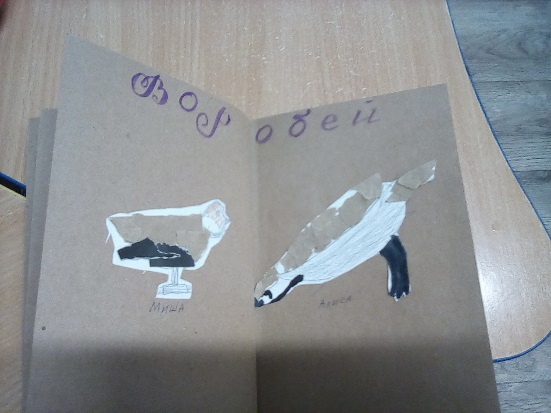 Воробей
Миша
Алиса